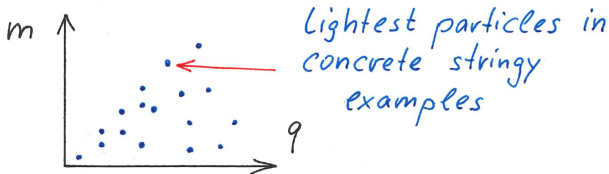 m
Lightest particles in
concrete stringy
examples
q